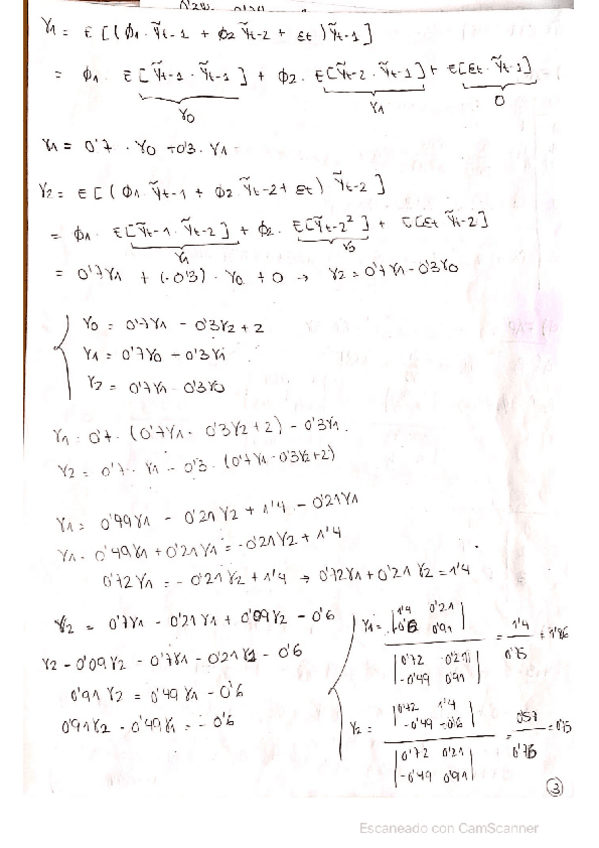 γ1 = E[(ϕ1·ỹt-1 + ϕ2 ỹt-2 + εt)ỹt-1]
= ϕ1 · E[ỹt-1 · ỹt-1] + ϕ2 · E[ỹt-2 · ỹt-1] + E[εt · ỹt-1]
γ0 γ1 0
γ1 = 0'7 · γ0 - 0'3 · γ1
γ2 = E[(ϕ1 · ỹt-1 + ϕ2 ỹt-2 + εt) ỹt-2]
= ϕ1 · E[ỹt-1 · ỹt-2] + ϕ2 · E[ỹt-2²] + E[εt ỹt-2]
γ1 γ0
= 0'7γ1 + (-0'3) · γ0 + 0 → γ2 = 0'7γ1 - 0'3γ0
γ0 = 0'7γ1 - 0'3γ2 + 2
γ1 = 0'7γ0 - 0'3γ1
γ2 = 0'7γ1 - 0'3γ0
γ1 = 0'7 · (0'7γ1 - 0'3γ2 + 2) - 0'3γ1
γ2 = 0'7 · γ1 - 0'3 · (0'7γ1 - 0'3γ2 + 2)
γ1 = 0'49γ1 - 0'21γ2 + 1'4 - 0'21γ1
γ1 - 0'49γ1 + 0'21γ1 = -0'21γ2 + 1'4
0'72γ1 = - 0'21γ2 + 1'4 → 0'72γ1 + 0'21γ2 = 1'4
γ2 = 0'7γ1 - 0'21γ1 + 0'09γ2 - 0'6
γ2 - 0'09γ2 - 0'7γ1 - 0'21γ1 - 0'6
0'91γ2 = 0'49γ1 - 0'6
0'91γ2 - 0'49γ1 = - 0'6
γ1 = |1'4 0'21|
0'91| = 1'4
|0'72 0'21| 0'75
|-0'49 0'91|
γ2 = |0'72 1'4|
|-0'49 -0'6| = 0'57 = 0'75
|0'72 0'21| 0'75
|-0'49 0'91|
3
Escaneado con CamScanner